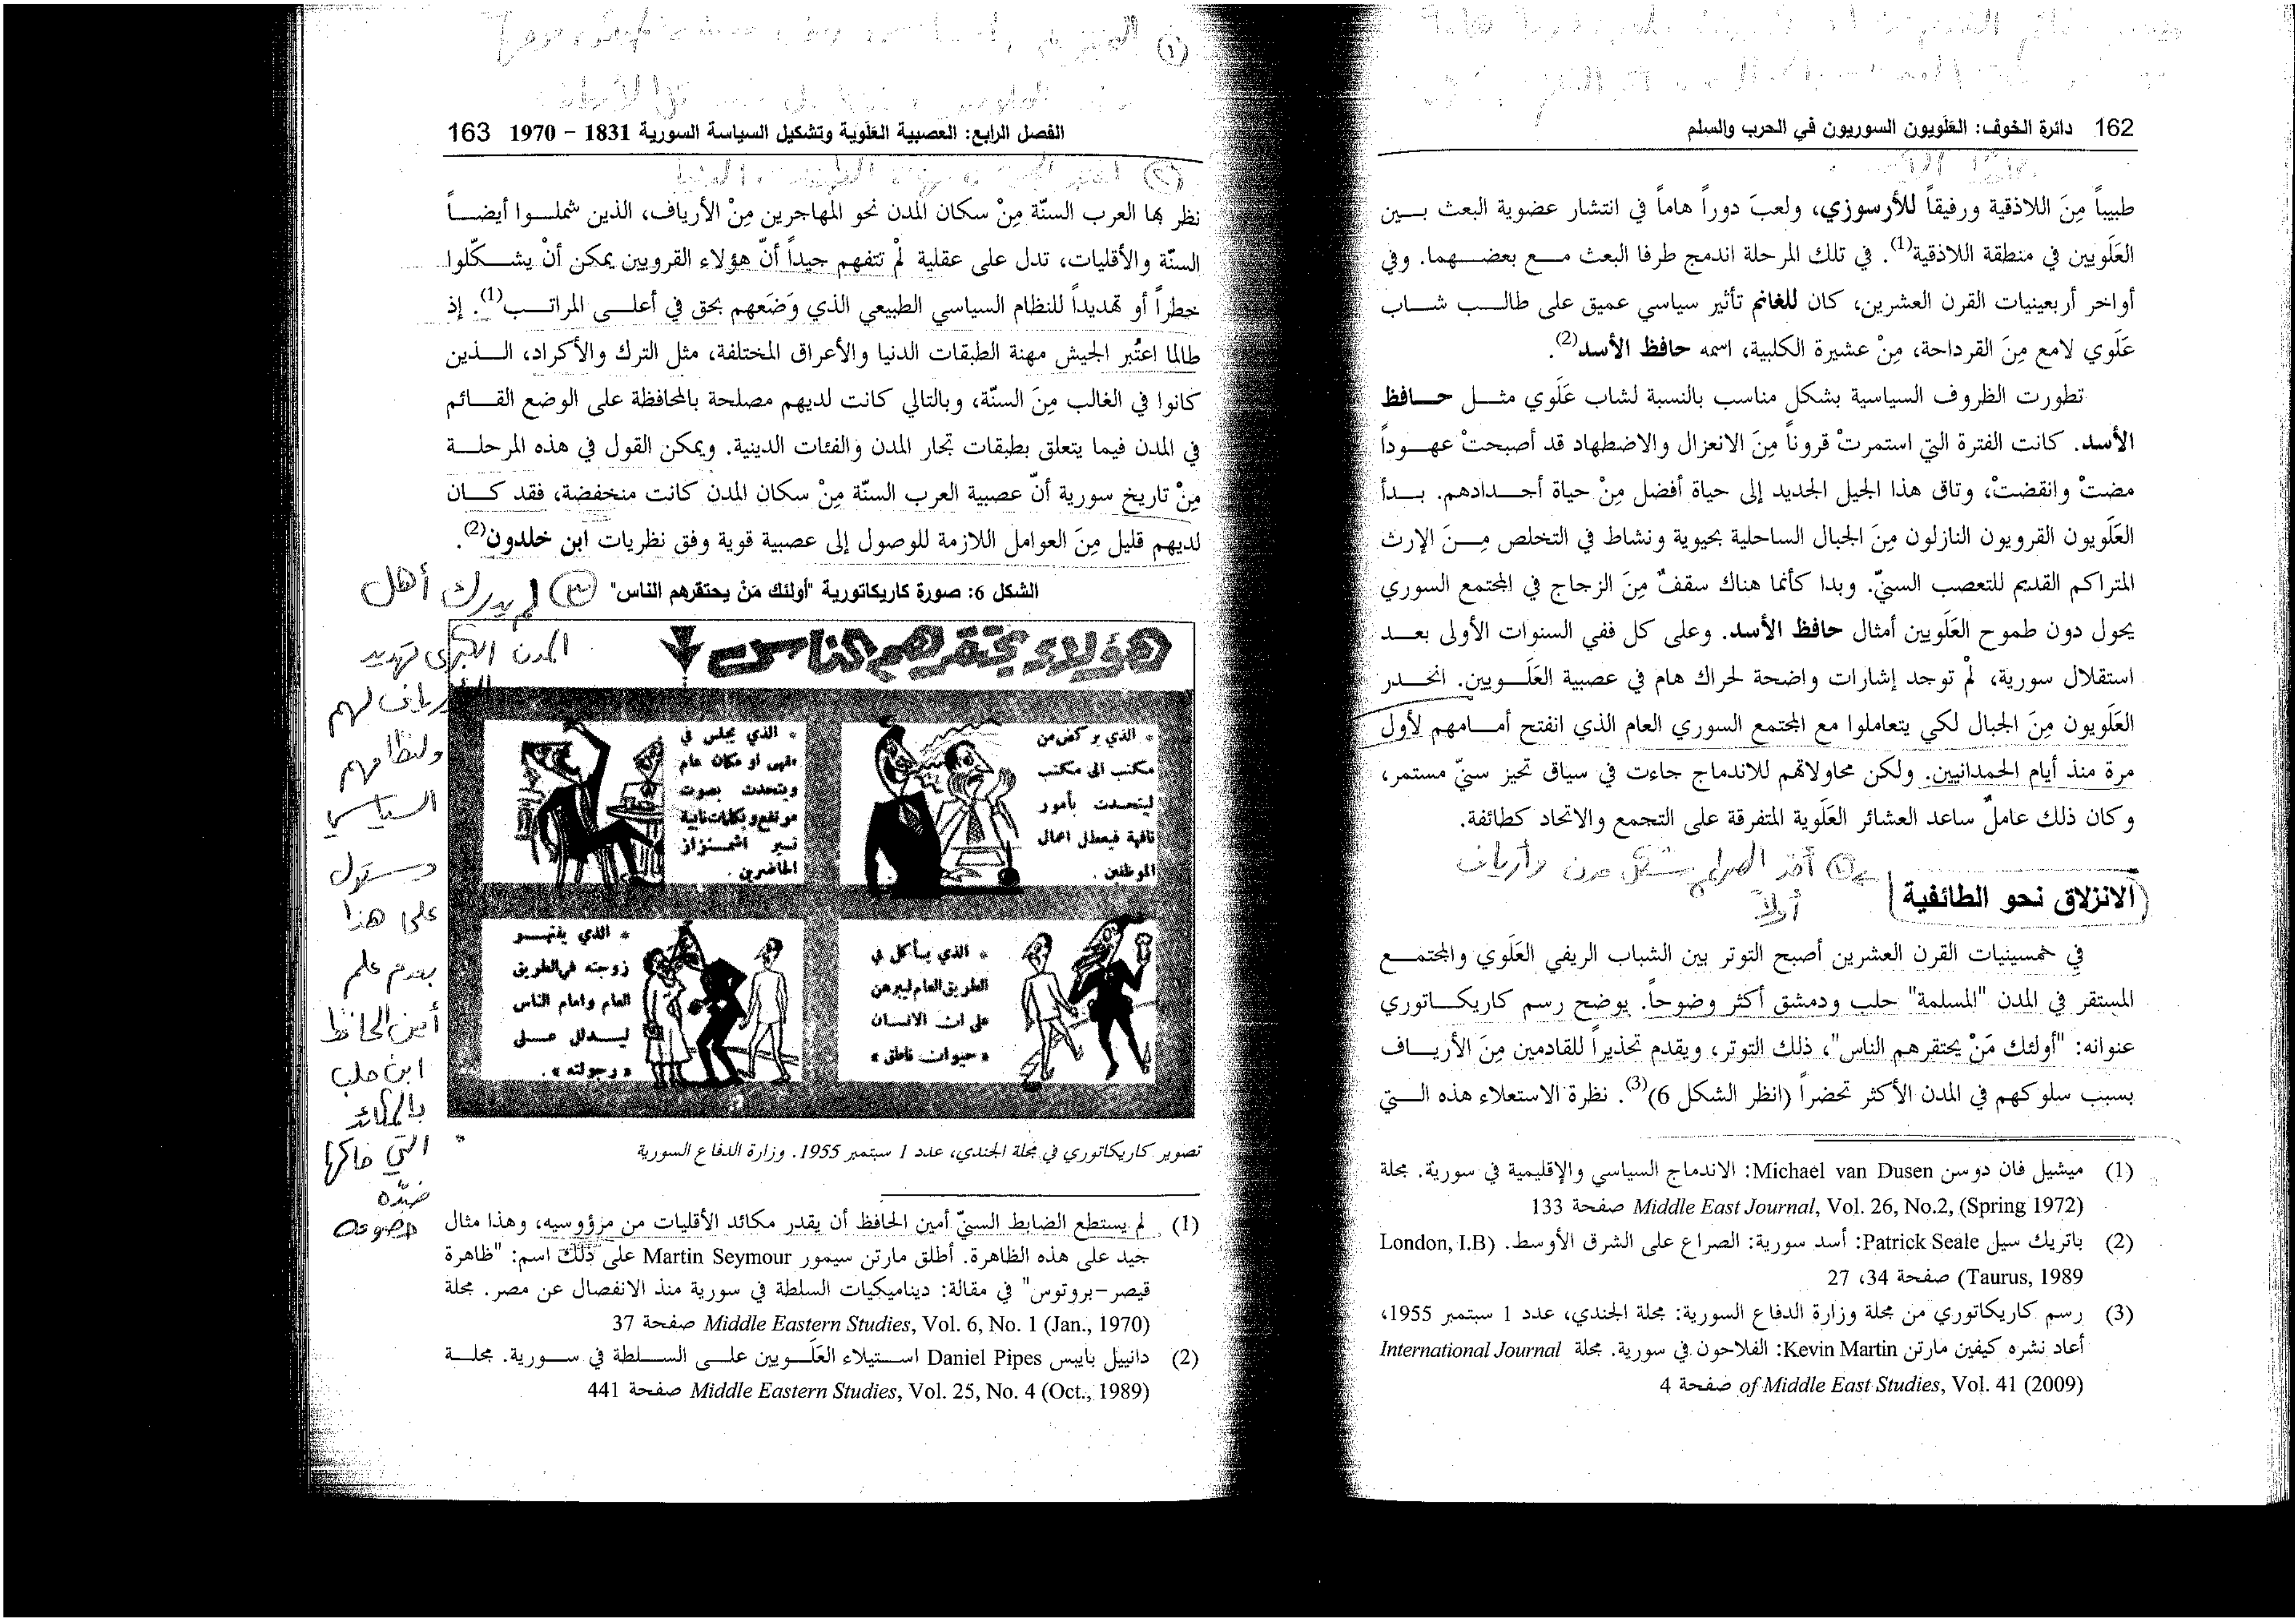 162 دائرة الخوف: العَلَويون السوريون في الحرب والسلم
طبيباً مِنَ اللاذقية ورفيقاً للأرسوزي، ولعبَ دوراً هاماً في انتشار عضوية البعث بـــين
العَلَويين في منطقة اللاذقية(1). في تلك المرحلة اندمج طرفا البعث مـــع بعضـــهما. وفي
أواخر أربعينيات القرن العشرين، كان للغانم تأثير سياسي عميق على طالـــب شـــاب
عَلَوي لامع مِنَ القرداحة، مِنْ عشيرة الكلبية، اسمه حافظ الأسد(2).
تطورت الظروف السياسية بشكل مناسب بالنسبة لشاب عَلَوي مثـــل حـــافظ
الأسد. كانت الفترة التي استمرتْ قروناً مِنَ الانعزال والاضطهاد قد أصبحتْ عهـــوداً
مضتْ وانقضتْ، وتاق هذا الجيل الجديد إلى حياة أفضل مِنْ حياة أجـــدادهم. بـــدأ
العَلَويون القرويون النازلون مِنَ الجبال الساحلية بحيوية ونشاط في التخلص مِـــنَ الإرث
المتراكم القديم للتعصب السنيّ. وبدا كأنما هناك سقفٌ مِنَ الزجاج في المجتمع السوري
يحول دون طموح العَلَويين أمثال حافظ الأسد. وعلى كل ففي السنوات الأولى بعـــد
استقلال سورية، لمْ توجد إشارات واضحة لحراك هام في عصبية العَلَـــويين. انحـــدر
العَلَويون مِنَ الجبال لكي يتعاملوا مع المجتمع السوري العام الذي انفتح أمـــامهم لأول
مرة منذ أيام الحمدانيين. ولكن محاولاتهم للاندماج جاءت في سياق تحيز سنيّ مستمر،
وكان ذلك عاملٌ ساعد العشائر العَلَوية المتفرقة على التجمع والاتحاد كطائفة.
① أخذ الصراع شكل مدن وأرياف
أولاً
الانزلاق نحو الطائفية
في خمسينيات القرن العشرين أصبح التوتر بين الشباب الريفي العَلَوي والمجتمـــع
المستقر في المدن "المسلمة" حلب ودمشق أكثر وضوحاً. يوضح رسم كاريكـــاتوري
عنوانه: "أولئك مَنْ يحتقرهم الناس"، ذلك التوتر، ويقدم تحذيراً للقادمين مِنَ الأريـــاف
بسبب سلوكهم في المدن الأكثر تحضراً (انظر الشكل 6)(3). نظرة الاستعلاء هذه الـــتي
(1) ميشيل فان دوسن Michael van Dusen: الاندماج السياسي والإقليمية في سورية. مجلة
Middle East Journal, Vol. 26, No.2, (Spring 1972) صفحة 133
(2) باتريك سيل Patrick Seale: أسد سورية: الصراع على الشرق الأوسط. (London, I.B
Taurus, 1989) صفحة 34، 27
(3) رسم كاريكاتوري من مجلة وزارة الدفاع السورية: مجلة الجندي، عدد 1 سبتمبر 1955،
أعاد نشره كيفين مارتن Kevin Martin: الفلاحون في سورية. مجلة International Journal
of Middle East Studies, Vol. 41 (2009) صفحة 4
الفصل الرابع: العصبية العَلَوية وتشكيل السياسة السورية 1831 – 1970 163
نظر بها العرب السنّة مِنْ سكان المدن نحو المهاجرين مِنْ الأرياف، الذين شملـــوا أيضـــاً
السنّة والأقليات، تدل على عقلية لمْ تتفهم جيداً أنّ هؤلاء القرويين يمكن أنْ يشـــكّلوا
خطراً أو تهديداً للنظام السياسي الطبيعي الذي وَضَعهم بحق في أعلـــى المراتـــب(1). إذ
طالما اعتُبر الجيش مهنة الطبقات الدنيا والأعراق المختلفة، مثل الترك والأكراد، الـــذين
كانوا في الغالب مِنَ السنّة، وبالتالي كانت لديهم مصلحة بالمحافظة على الوضع القـــائم
في المدن فيما يتعلق بطبقات تجار المدن والفئات الدينية. ويمكن القول في هذه المرحلـــة
مِنْ تاريخ سورية أنّ عصبية العرب السنّة مِنْ سكان المدن كانت منخفضة، فقد كـــان
لديهم قليل مِنَ العوامل اللازمة للوصول إلى عصبية قوية وفق نظريات ابن خلدون(2).
الشكل 6: صورة كاريكاتورية "أولئك مَنْ يحتقرهم الناس"
③ لم يدرك أهل
المدن الكبرى تهديد
الأرياف لهم
ولنظامهم
السياسي
على هذا
بعدم علم
أمين الحافظ
ابن حلب
بالمكائد
التي حاكها
ضدّه
هؤلاء يحتقرهم الناس
* الذي يركض من
مكتب الى مكتب
ليتحدث بأمور
تافهة فيعطل اعمال
الموظفين .
* الذي يجلس في
مقهى او مكان عام
ويتحدث بصوت
مرتفع وبكلمات نابية
تثير اشمئزاز
الحاضرين .
* الذي يأكل في
الطريق العام ليبرهن
على ان الانسان
« حيوان ناطق »
* الذي ينتهر
زوجته في الطريق
العام وامام الناس
ليدلل على
« رجولته » .
تصوير كاريكاتوري في مجلة الجندي، عدد 1 سبتمبر 1955. وزارة الدفاع السورية
(1) لم يستطع الضابط السنيّ أمين الحافظ أن يقدر مكائد الأقليات من مرؤوسيه، وهذا مثال
جيد على هذه الظاهرة. أطلق مارتن سيمور Martin Seymour على ذلك اسم: "ظاهرة
قيصر-بروتوس" في مقالة: ديناميكيات السلطة في سورية منذ الانفصال عن مصر. مجلة
Middle Eastern Studies, Vol. 6, No. 1 (Jan., 1970) صفحة 37
(2) دانييل بايبس Daniel Pipes اســـتيلاء العَلَـــويين علـــى الســـلطة في ســـورية. مجلـــة
Middle Eastern Studies, Vol. 25, No. 4 (Oct., 1989) صفحة 441